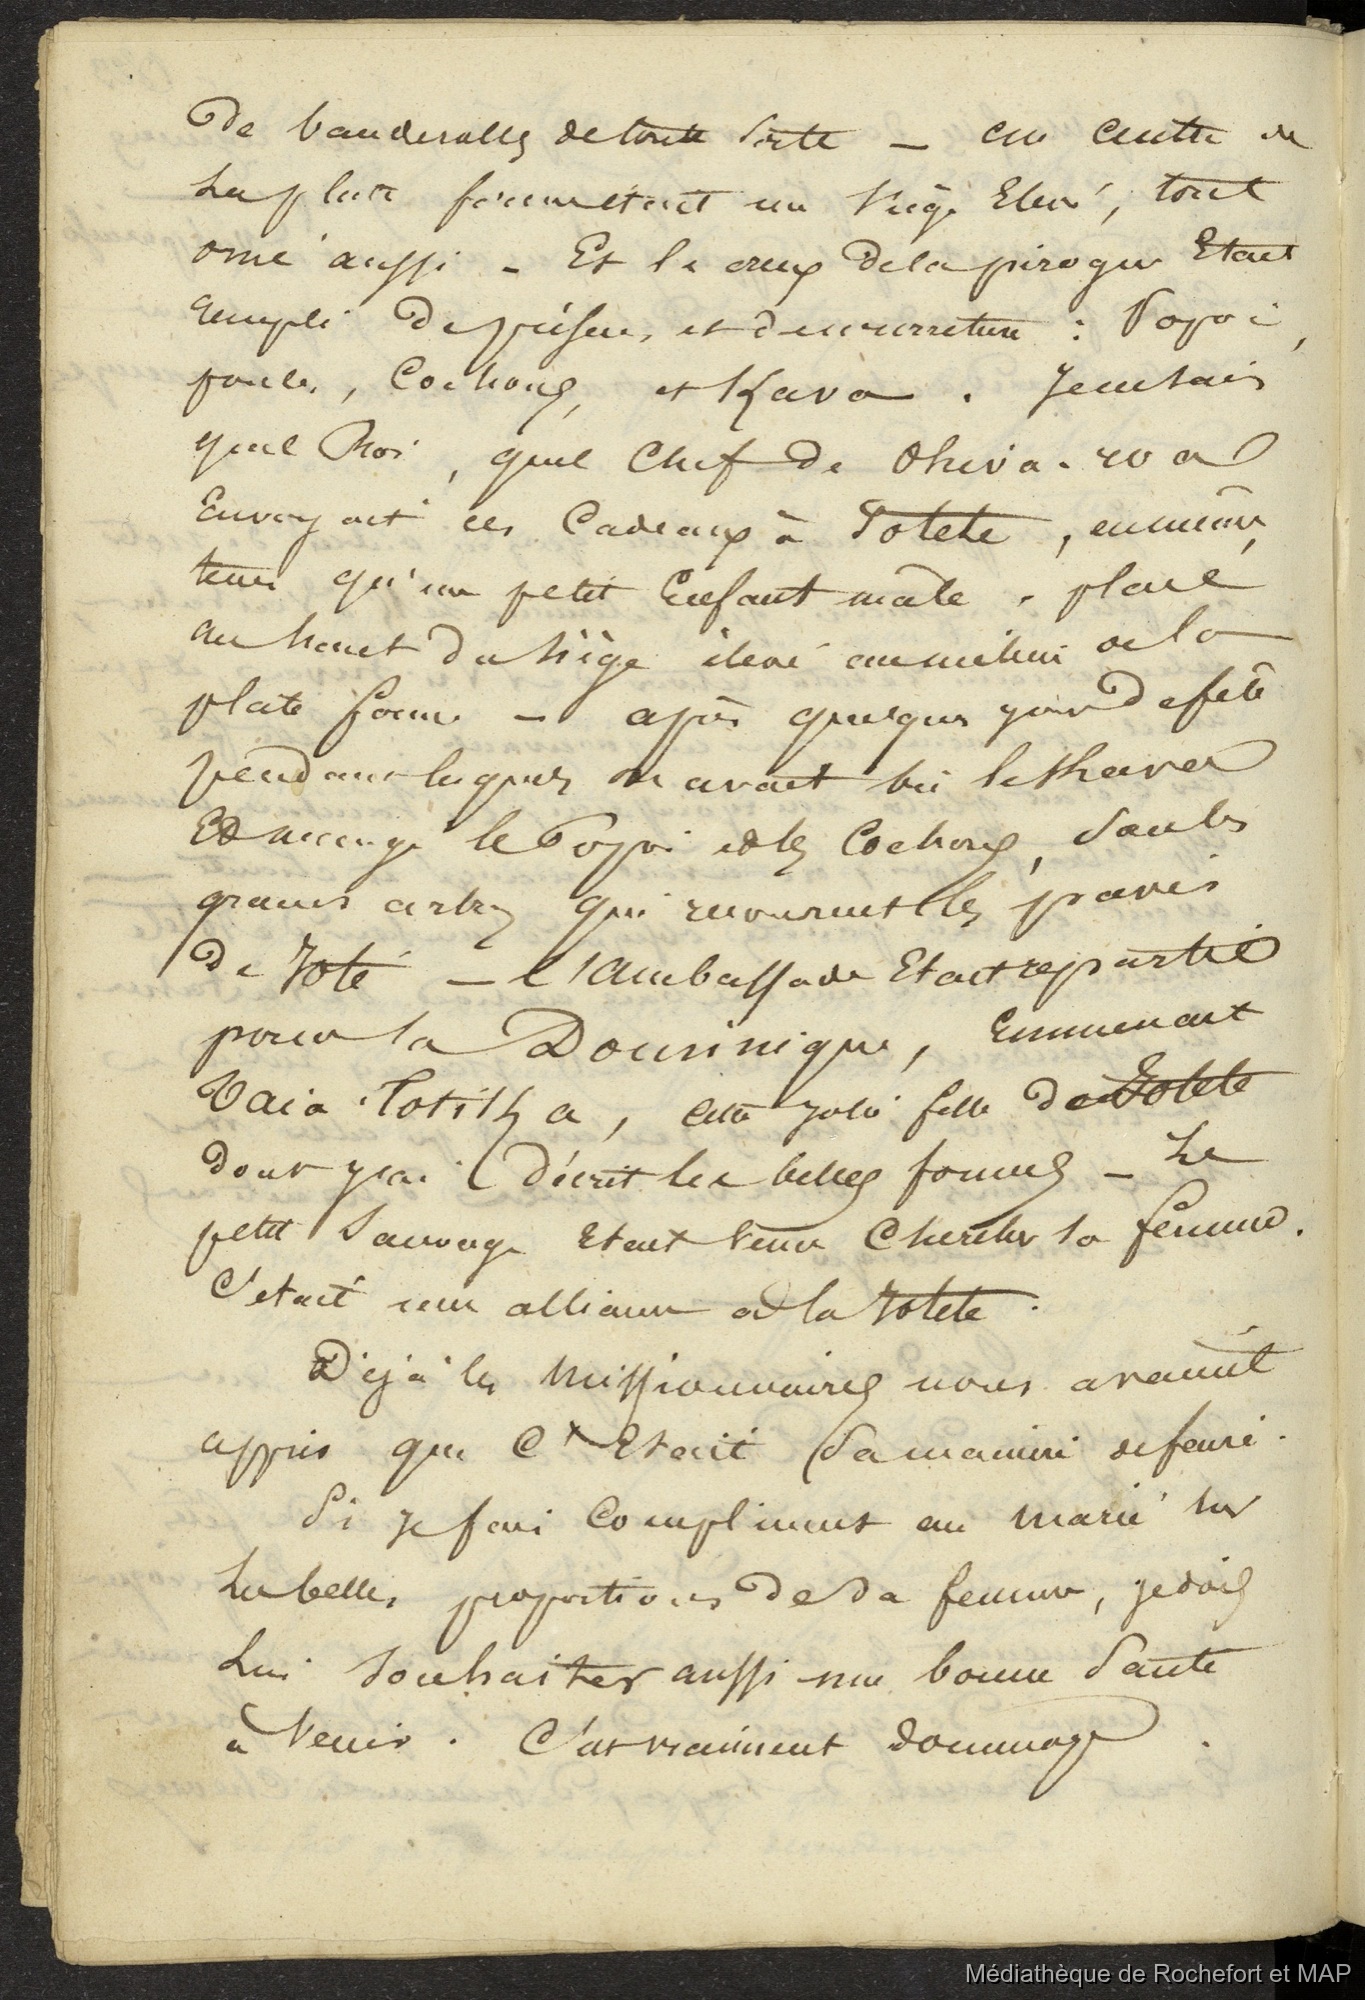 De banderolles de toute sorte — au centre de
la plate forme était un siège Elevé, tout
orné aussi - Et le creux de la pirogue Etait
rempli de présens, et de nourriture : Popoi,
poules, Cochons, et Kava. Je ne sais
quel Roi, quel Chef de Ohiva-roa
Envoyait ces Cadeaux à Iotete, en même
tems qu'un petit Enfant mâle, placé
au haut du siège élevé au milieu de la
plate forme — après quelques jours de fête
pendant lesquels on avait bu le Khava
Et mangé le Popoi et les Cochons, sous les
grands arbres qui recouvrent les pavés
de Ioté — l'ambassade Etait repartie
pour la Dominique, Emmenant
Vaia Totikha, cette jolie fille de Iotete
dont j'ai décrit les belles formes — Le
petit Sauvage Etait venu Chercher sa femme.
C'était une alliance à la Iotete.
Déjà les Missionnaires nous avaient
appris que C'Etait sa manière de faire.
Si je fais Compliment au marié sur
les belles proportions de sa femme, je dois
lui souhaiter aussi une bonne Santé
à venir. C'est vraiment dommage.
Médiathèque de Rochefort et MAP